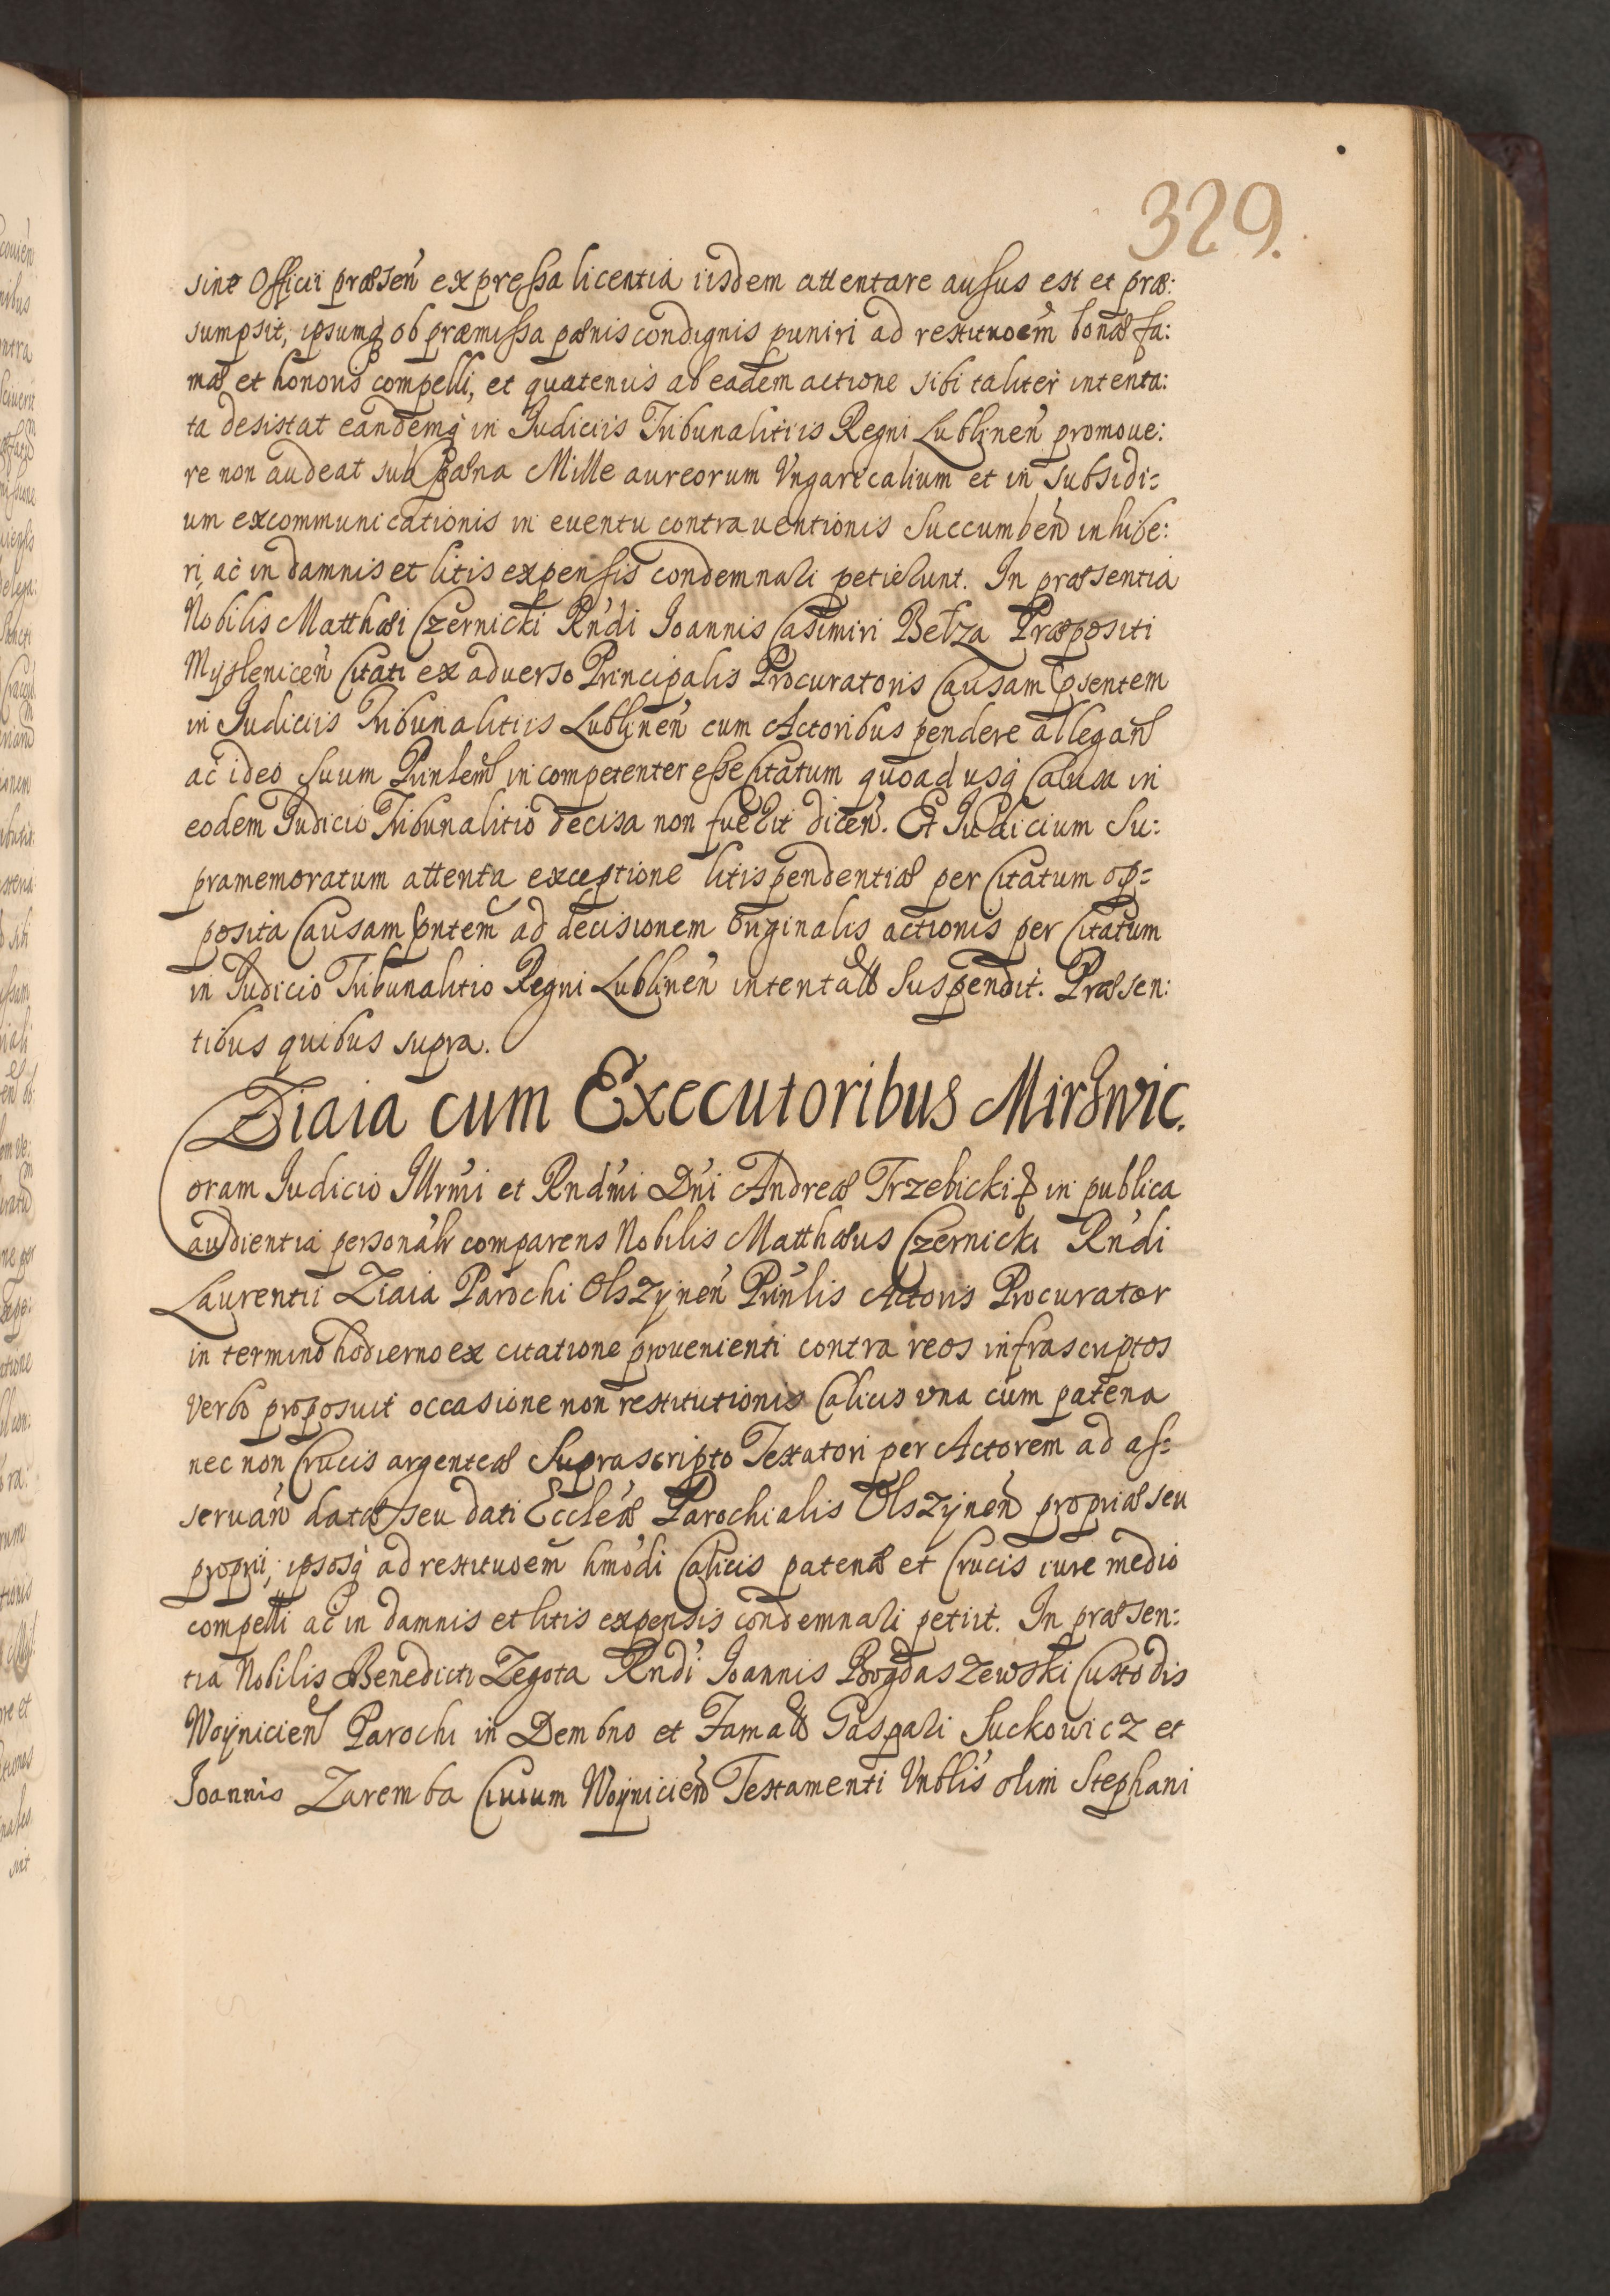 329.
sine Officii præsen̄ expressa licentia iisdem attentare ausus est et præ:
sumpsit, ipsumq́ ob præmissa pænis condignis puniri ad restituoem̄ bonæ fa:
mæ et honoris compelli, et quatenus ab eadem actione sibi taliter intenta:
ta desistat eandemq́ in Judiciis Tribunalitiis Regni Lublinen̄ promoue:
re non audeat sub Pæna Mille aureorum Vngaricalium et in subsidi:
um excommunicationis in euentu contrauentionis Succumben̄ inhibe:
ri, ac in damnis et litis expensis condemnari petierunt. In præsentia
Nobilis Matthæi Czernicki Rńdi Joannis Casimiri Betza Præpositi
Myslenicen̄ Citati ex aduerso Principalis Procuratoris Causam psentem
in Judiciis Tribunalitiis Lublinen̄ cum Actoribus pendere allegan̄
ac ideo suum Prinlem̄ incompetenter esse Citatum quoad usq́ Causa in
eodem Judicio Tribunalitio decisa non fuerit dicen̄. Et Judicium Su:
pramemoratum attenta exceptione litispendentiæ per Citatum op:
posita Causam pntem̄ ad decisionem originalis actionis per Citatum
in Judicio Tribunalitio Regni Lublinen̄ intentatæ Suspendit. Præsen:
tibus quibus supra.
Ziaia cum Executoribus Mirowic.
Coram Judicio Illrmi et Rndmi Dńi Andreæ Trzebicki in publica
audientia personalr comparens Nobilis Matthæus Czernicki Rńdi
Laurentii Ziaia Parochi Olszynen̄ Prinlis Actoris Procurator
in termino hodierno ex citatione prouenienti contra reos infrascriptos
verbo proposuit occasione non restitutionis Calicis vna cum patena
nec non Crucis argenteæ Suprascripto Testatori per Actorem ad as:
seruan̄ datæ seu dati Eccleæ Parochialis Olszynen̄ propriæ seu
proprii, ipsosq́ ad restituoem̄ hmodi Calicis patenæ et Crucis iure medio
compelli ac in damnis et litis expensis condemnari petiit. In præsen:
tia Nobilis Benedicti Zegota Rndi Joannis Bogdaszewski Custodis
Woynicien̄ Parochi in Dembno et Famatt Gaspari Suckowicz et
Joannis Zaremba Ciuium Woynicien̄ Testamenti Vnblis olim Stephani